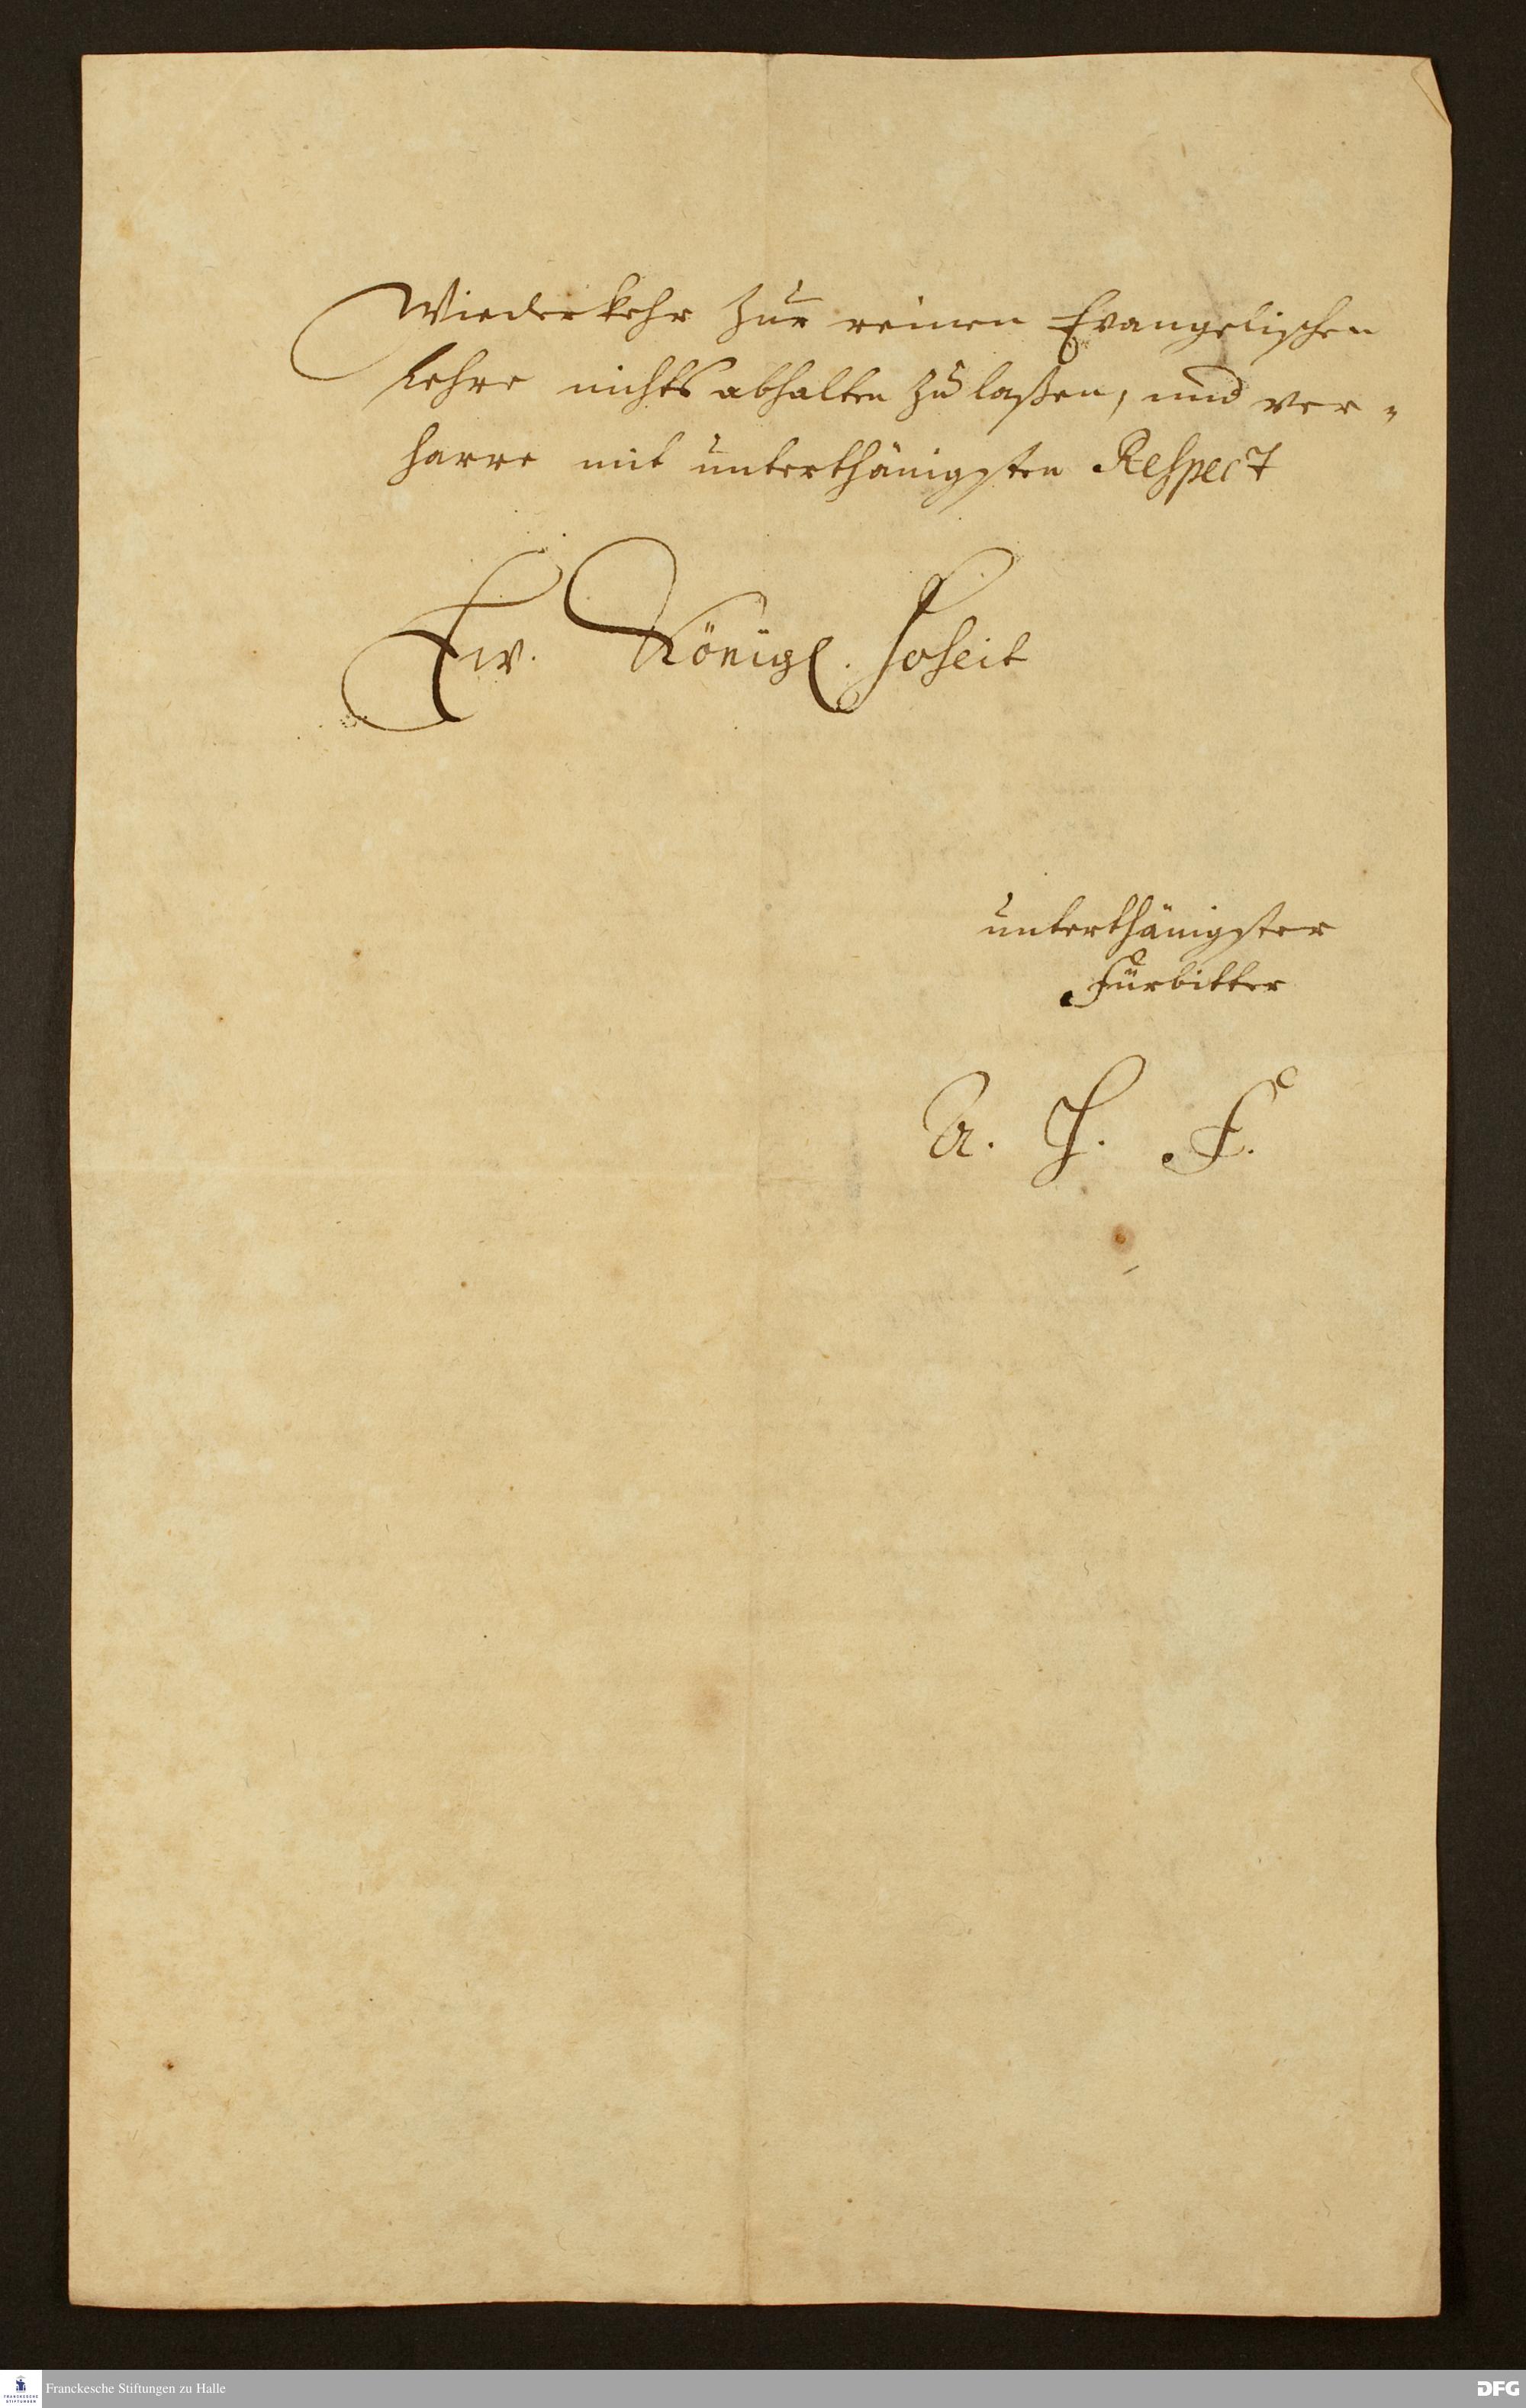 Wiederkehr zur reinen Evangelischen
Lehre nichts abhalten zu laßen, und ver-
harre mit unterthänigsten Respect
Ew. Königl. Hoheit
unterthänigster
Fürbitter
A. H. F.
Franckesche Stiftungen zu Halle
DFG